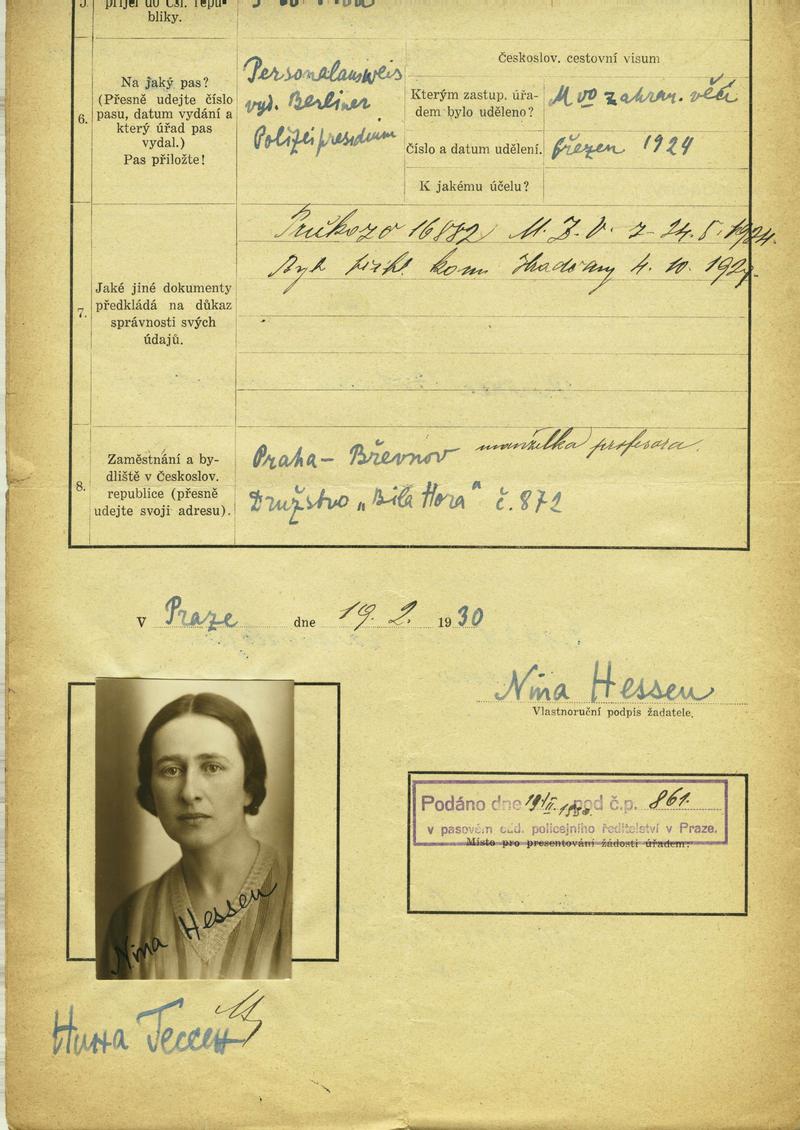 5.
přijel do Čsl. repu-
bliky.
6.
Na jaký pas?
(Přesně udejte číslo
pasu, datum vydání a
který úřad pas
vydal.)
Pas přiložte!
Personalausweis
vyd. Berliner
Polizeipresidium
Českoslov. cestovní visum
Kterým zastup. úřa-
dem bylo uděleno?
M vo zahran. věcí
Číslo a datum udělení.
březen 1924
K jakému účelu?
7.
Jaké jiné dokumenty
předkládá na důkaz
správnosti svých
údajů.
16882 M. Z. V. z 24. 5. 1924.
kom Hradčany 4. 10. 1927.
8.
Zaměstnání a by-
dliště v Českoslov.
republice (přesně
udejte svoji adresu).
Praha - Břevnov manželka profesora.
Družstvo „Bílá Hora" č. 872
V Praze dne 19. 2. 1930
Nina Hessen
Vlastnoruční podpis žadatele.
Podáno dne 19/II. 1930 pod č.p. 861.
v pasovém odd. policejního ředitelství v Praze.
Místo pro presentování žádosti úřadem:
Nina Hessen
Нина Гессен